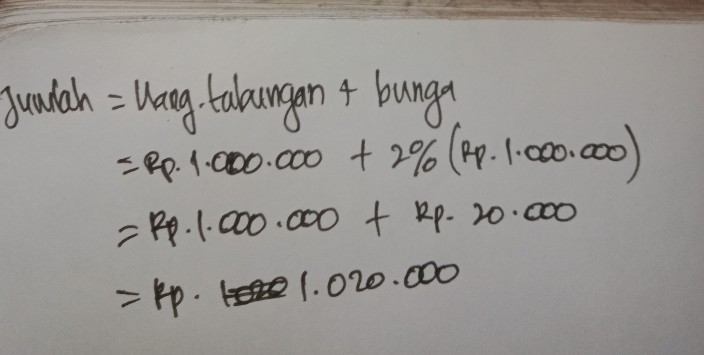 Jumlah = Uang.tabungan + bunga
= Rp. 1.000.000 + 2% (Rp. 1.000.000)
= Rp. 1.000.000 + Rp. 20.000
= Rp. 1.020.000